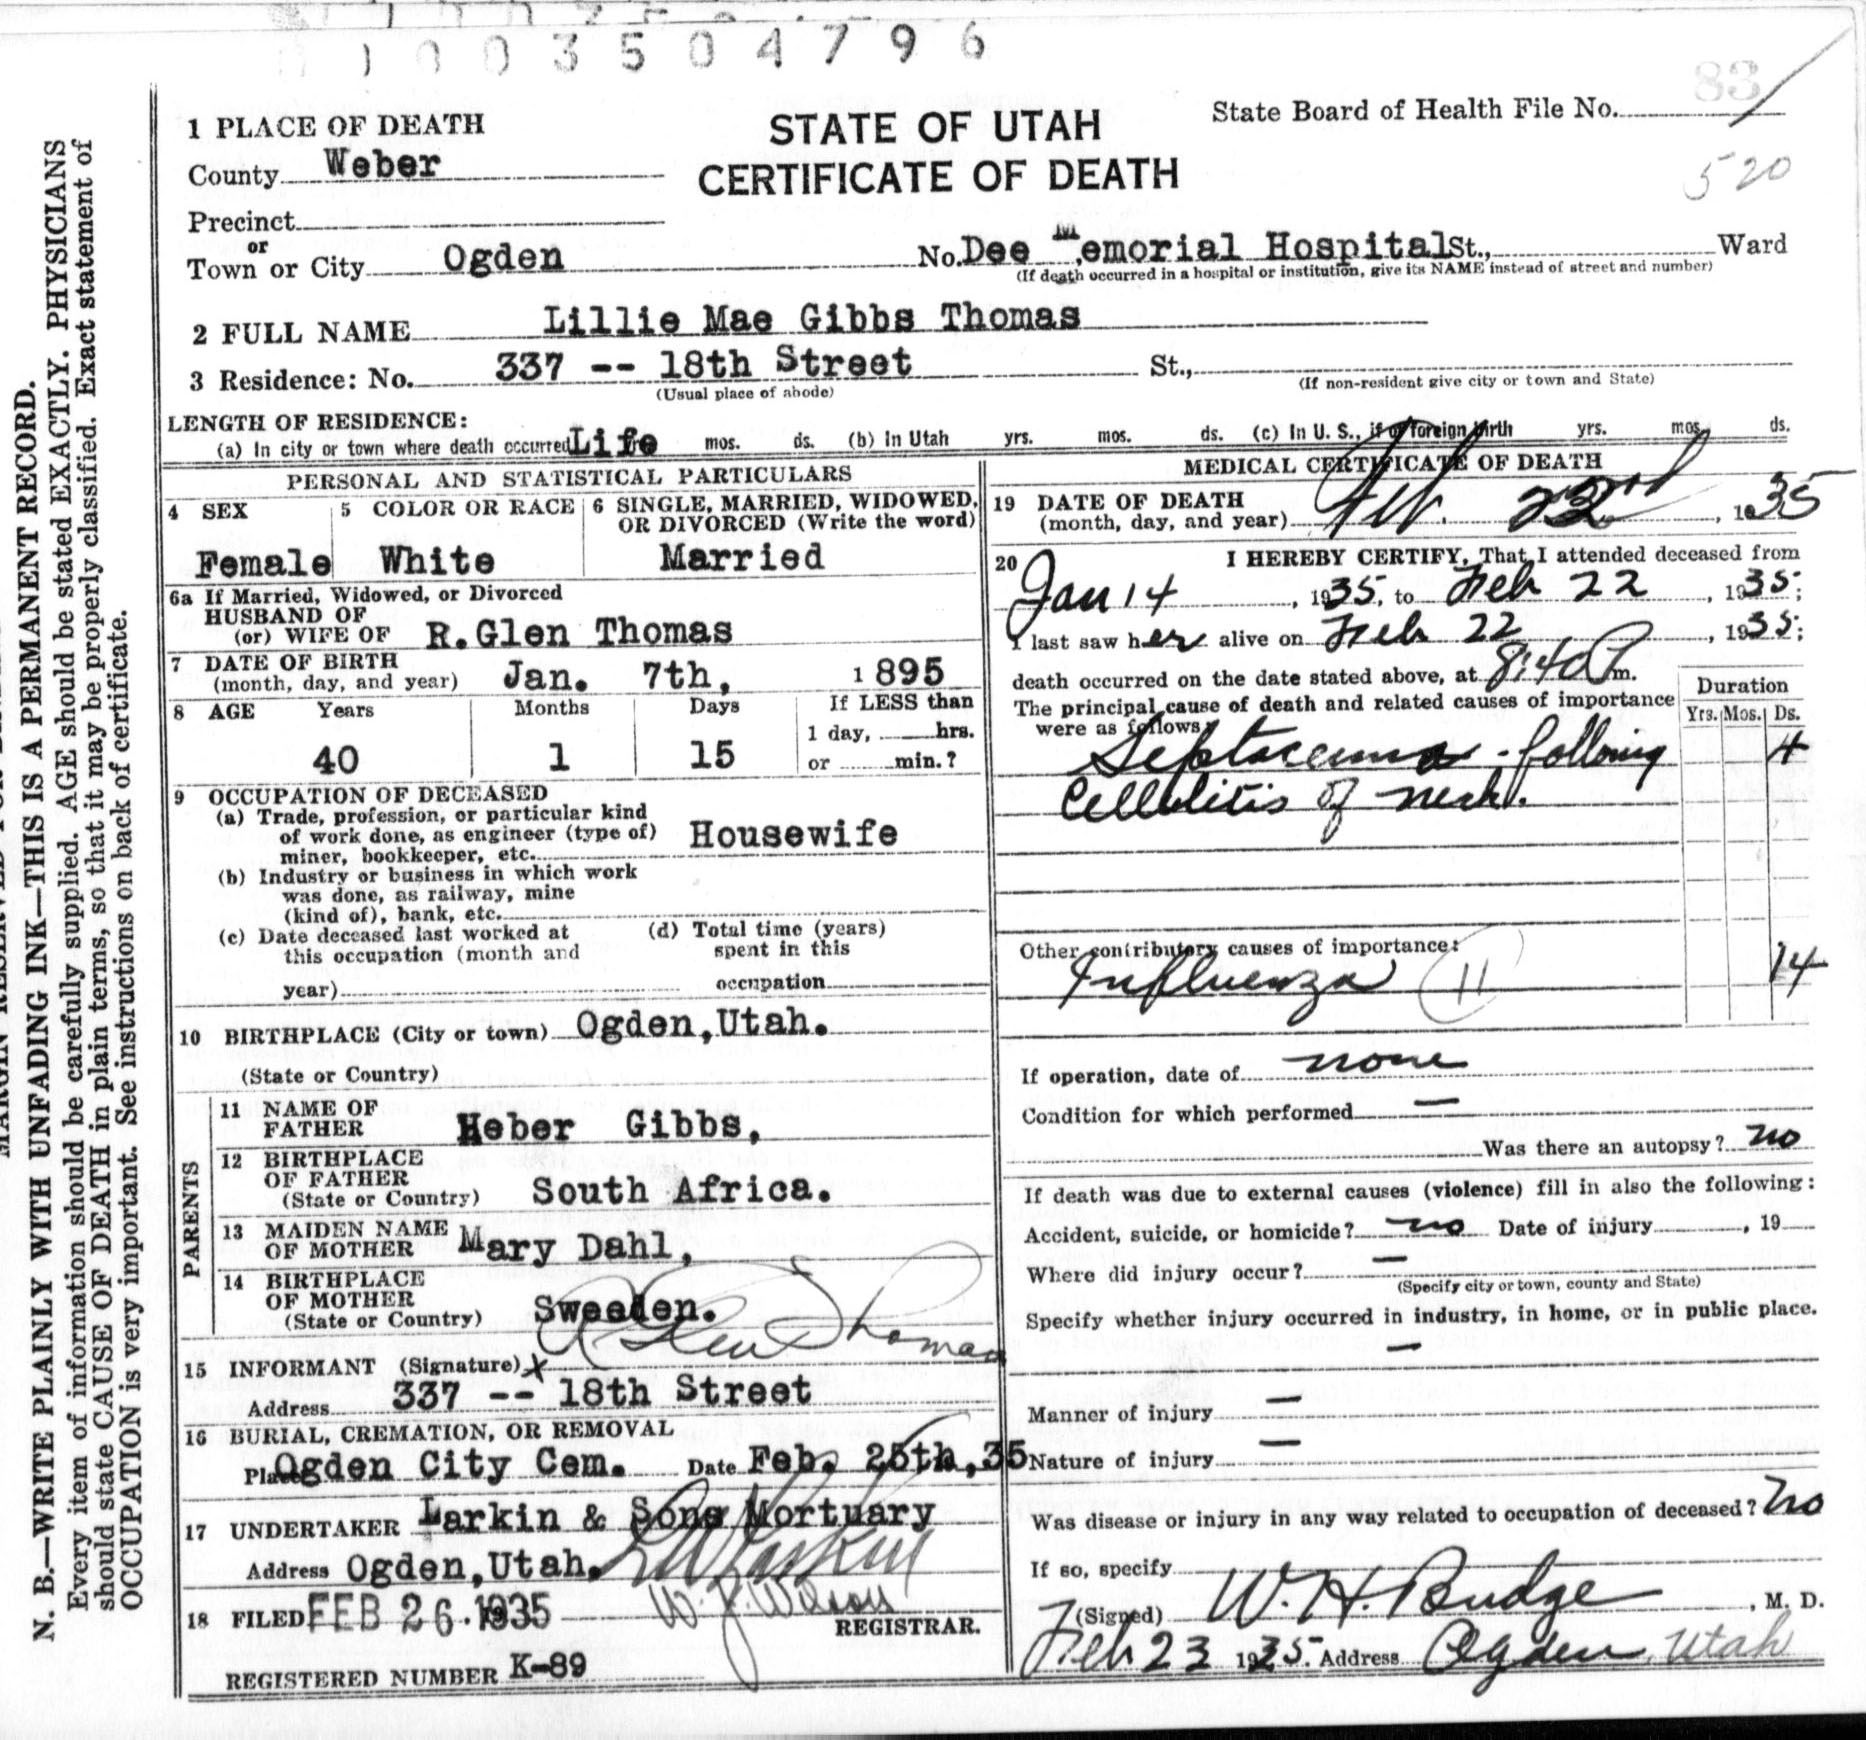 1003504796
83
1 PLACE OF DEATH
STATE OF UTAH
CERTIFICATE OF DEATH
State Board of Health File No.
520
County Weber
Precinct
or
Town or City Ogden No. Dee Memorial Hospital St., Ward
(If death occurred in a hospital or institution, give its NAME instead of street and number)
2 FULL NAME Lillie Mae Gibbs Thomas
3 Residence: No. 337 -- 18th Street St.,
(Usual place of abode) (If non-resident give city or town and State)
LENGTH OF RESIDENCE:
(a) In city or town where death occurred Life mos. ds. (b) In Utah yrs. mos. ds. (c) In U. S., if of foreign birth yrs. mos. ds.
PERSONAL AND STATISTICAL PARTICULARS
4 SEX 5 COLOR OR RACE 6 SINGLE, MARRIED, WIDOWED,
OR DIVORCED (Write the word)
Female White Married
6a If Married, Widowed, or Divorced
HUSBAND OF
(or) WIFE OF R.Glen Thomas
7 DATE OF BIRTH
(month, day, and year) Jan. 7th, 1895
8 AGE Years Months Days If LESS than
1 day, hrs.
40 1 15 or min.?
9 OCCUPATION OF DECEASED
(a) Trade, profession, or particular kind
of work done, as engineer (type of) Housewife
miner, bookkeeper, etc.
(b) Industry or business in which work
was done, as railway, mine
(kind of), bank, etc.
(c) Date deceased last worked at (d) Total time (years)
this occupation (month and spent in this
year) occupation
10 BIRTHPLACE (City or town) Ogden,Utah.
(State or Country)
PARENTS
11 NAME OF
FATHER Heber Gibbs,
12 BIRTHPLACE
OF FATHER
(State or Country) South Africa.
13 MAIDEN NAME
OF MOTHER Mary Dahl,
14 BIRTHPLACE
OF MOTHER
(State or Country) Sweeden.
15 INFORMANT (Signature) x R Glen Thomas
Address 337 -- 18th Street
16 BURIAL, CREMATION, OR REMOVAL
Place Ogden City Cem. Date Feb. 25th,35
17 UNDERTAKER Larkin & Sons Mortuary
Address Ogden,Utah. Larkin
18 FILED FEB 26 1935 W. J. Wilson
REGISTRAR.
REGISTERED NUMBER K-89
MEDICAL CERTIFICATE OF DEATH
19 DATE OF DEATH
(month, day, and year) Feb. 22nd, 1935
20 I HEREBY CERTIFY, That I attended deceased from
Jan 14, 1935, to Feb 22, 1935;
I last saw her alive on Feb 22, 1935;
death occurred on the date stated above, at 8:40 P m.
The principal cause of death and related causes of importance
were as follows:
Duration
Yrs. Mos. Ds.
Septacemia - following 4
Cellulitis of neck.
Other contributory causes of importance:
Influenza (11) 14
If operation, date of none
Condition for which performed —
Was there an autopsy? no
If death was due to external causes (violence) fill in also the following:
Accident, suicide, or homicide? no Date of injury , 19
Where did injury occur? —
(Specify city or town, county and State)
Specify whether injury occurred in industry, in home, or in public place.
—
Manner of injury —
Nature of injury —
Was disease or injury in any way related to occupation of deceased? no
If so, specify
(Signed) W. H. Budge, M. D.
Feb 23 1935. Address Ogden, Utah
N. B.—WRITE PLAINLY WITH UNFADING INK—THIS IS A PERMANENT RECORD.
Every item of information should be carefully supplied. AGE should be stated EXACTLY. PHYSICIANS
should state CAUSE OF DEATH in plain terms, so that it may be properly classified. Exact statement of
OCCUPATION is very important. See instructions on back of certificate.